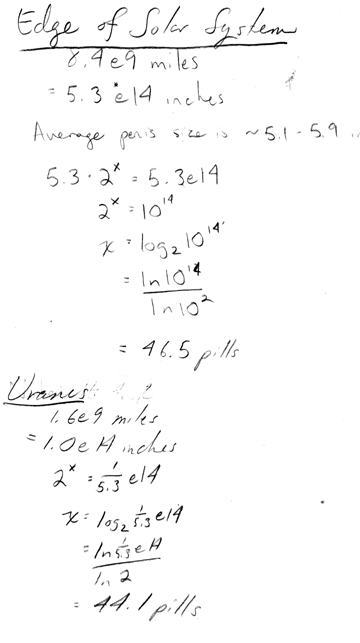 Edge of Solar System
8.4e9 miles
= 5.3 e14 inches
Average penis size is ~5.1 - 5.9
5.3 · 2^x = 5.3e14
2^x = 10^14
x = log₂ 10^14
= ln 10^14
ln 10^2
= 46.5 pills
Uranus
1.6e9 miles
= 1.0e14 inches
2^x = 1/5.3 e14
x = log₂ 1/5.3 e14
= ln 1/5.3 e14
ln 2
= 44.1 pills